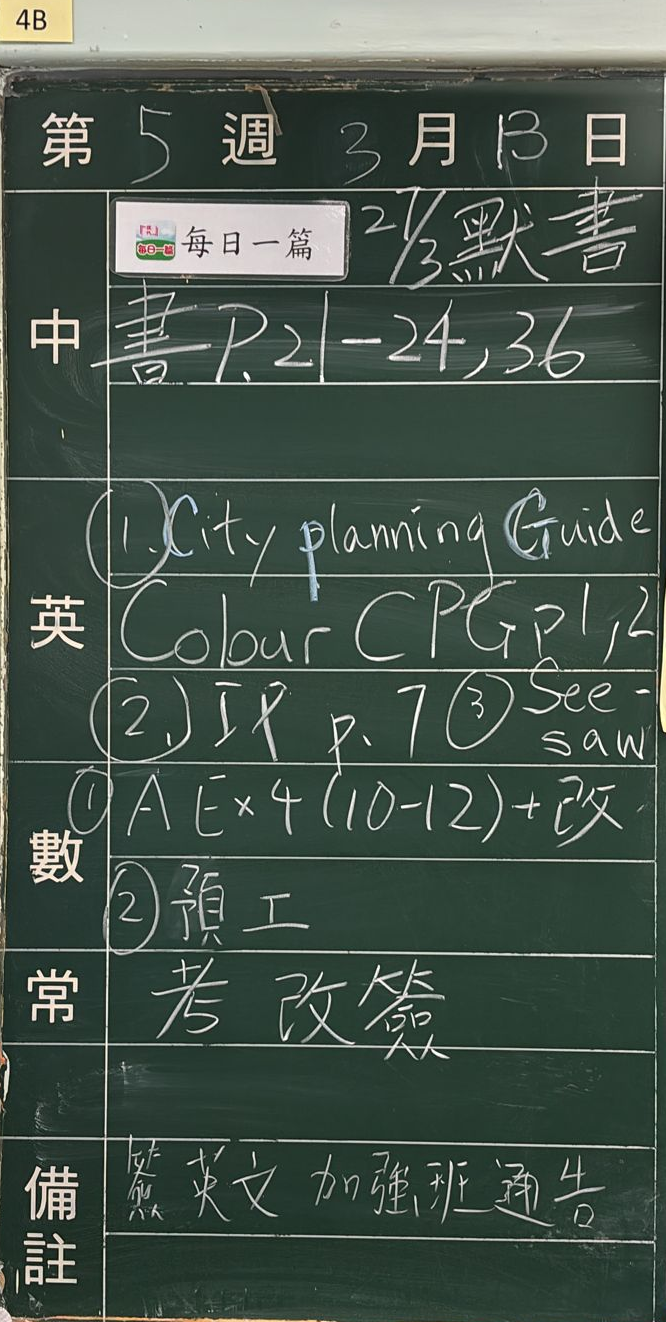 4B
第 5 週 3 月 13 日
中
每日一篇 每日一篇 27/3 默書
書 P.21-24, 36
英
①. City planning Guide
Colour CPG p1,2
②. IP p.7 ③ See-saw
數
① A Ex4 (10-12) + 改
② 預工
常
考 改簽
備註
簽 英文 加強班 通告